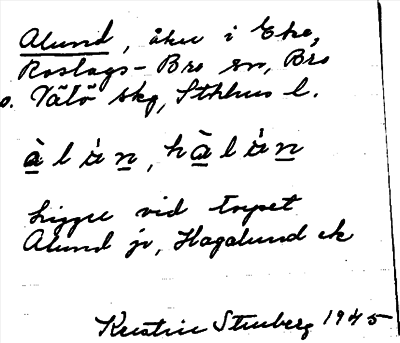 Alund, åker i Eke,
Roslags-Bro sn, Bro
o. Vätö skg, Sthlms l.
àlán, hàlán
Ligger vid torpet
Alund jr, Hagalund ek
Kerstin Stenberg 1945